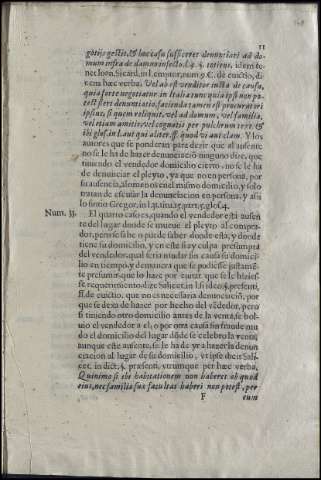 11
gotijs gessit, & hoc casu sufficeret denuntiari ad do-
mum infra de damno infecto. l. 4. §. totius, idem te-
net Ioan. Sicard. in l. emptor, num. 9. C. de euictio, di-
cens hæc verba. Vel ab est venditor iusta de causa,
quia forte negotiatur in Italia tunc quia ipsi non po-
test fieri denuntiatio, facienda tamen est procuratori
ipsius, si quem reliquit, vel ad domum, vel familia,
vel etiam amicis, vel cognatis per pulchrum text. &
ibi glos. in l. aut qui aliter. ff. quod vi aut clam. Y los
autores que se ponderan para dezir que al ausente
no se le ha de hazer denunciacion ninguno dize, que
tiniendo el vendedor domicilio cierto, no se le ha
de denunciar el pleyto, ya que no en persona, por
su ausencia, alomenos en el mismo domicilio, y solo
tratan de escusar la denunciacion en persona, y assi
lo sintio Gregor. in l. 32. tit. 5. part. 5. glos. 4.
Num. 33. El quarto caso es, quando el vendedor està ausen
te del lugar donde se mueue el pleyto al compra-
dor, pero se sabe o puede saber donde està, y donde
tiene su domicilio, y en este si ay culpa presumpta
del vendedor, qual seria mudar sin causa su domici-
lio en tiempo, y demanera que se pudiesse justamē-
te presumir, que lo haze por euitar que se le hizies-
se requerimento dize Salicet. in l. si ideo. §. præsenti,
ff. de euictio. que no es necessaria denunciacion, por
que se dexo de hazer por hecho del vēdedor, pero
si tiniendo otro domicilio antes de la venta, se bol-
uio el vendedor a el, o por otra causa sin fraude mu-
do el domicilio del lugar dōde se celebro la venta,
aunque este ausente, se le ha de yr a hazer la denun
ciacion al lugar de su domicilio, vt ipse theis Sali-
cet. in dict. §. præsenti, vtrumque per hæc verba,
Quinimo si ibi habitationem non haberet ab quod
eius, nec familia sua facultas haberi non potest, per
F eum